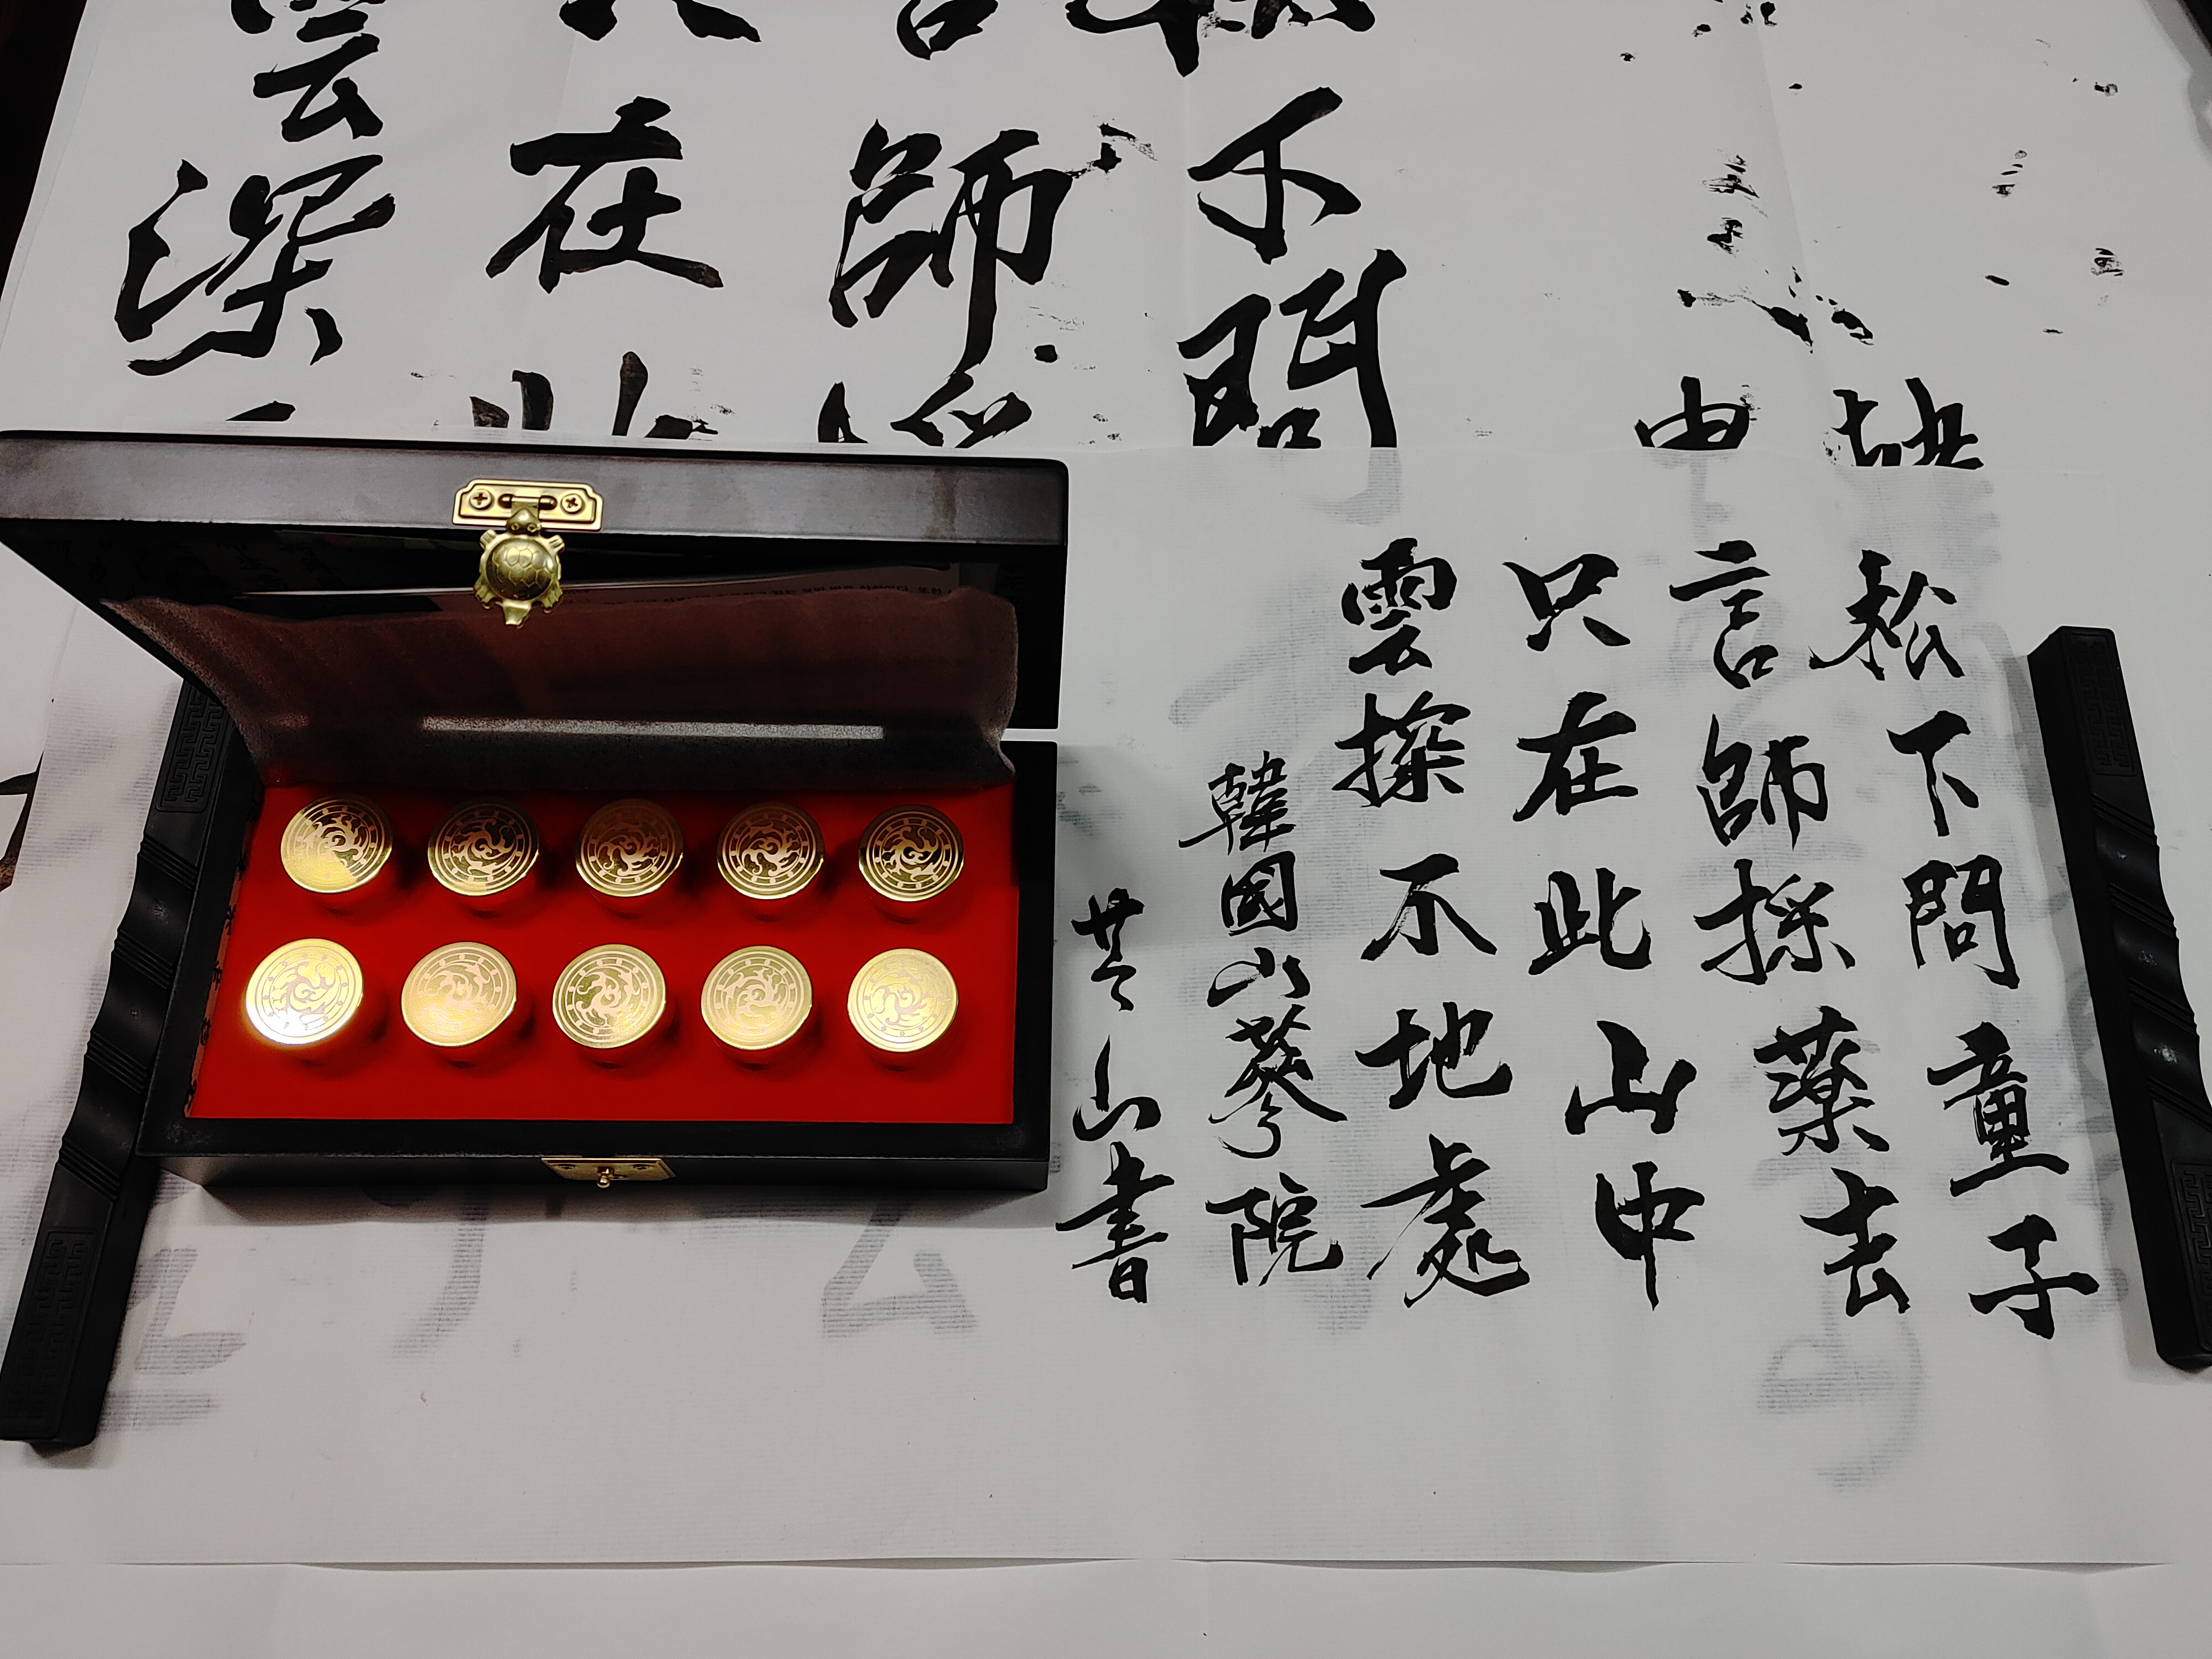 下問
師
在
雲深
松下問童子
言師採藥去
只在此山中
雲探不地處
韓國山蔘院
芸山書